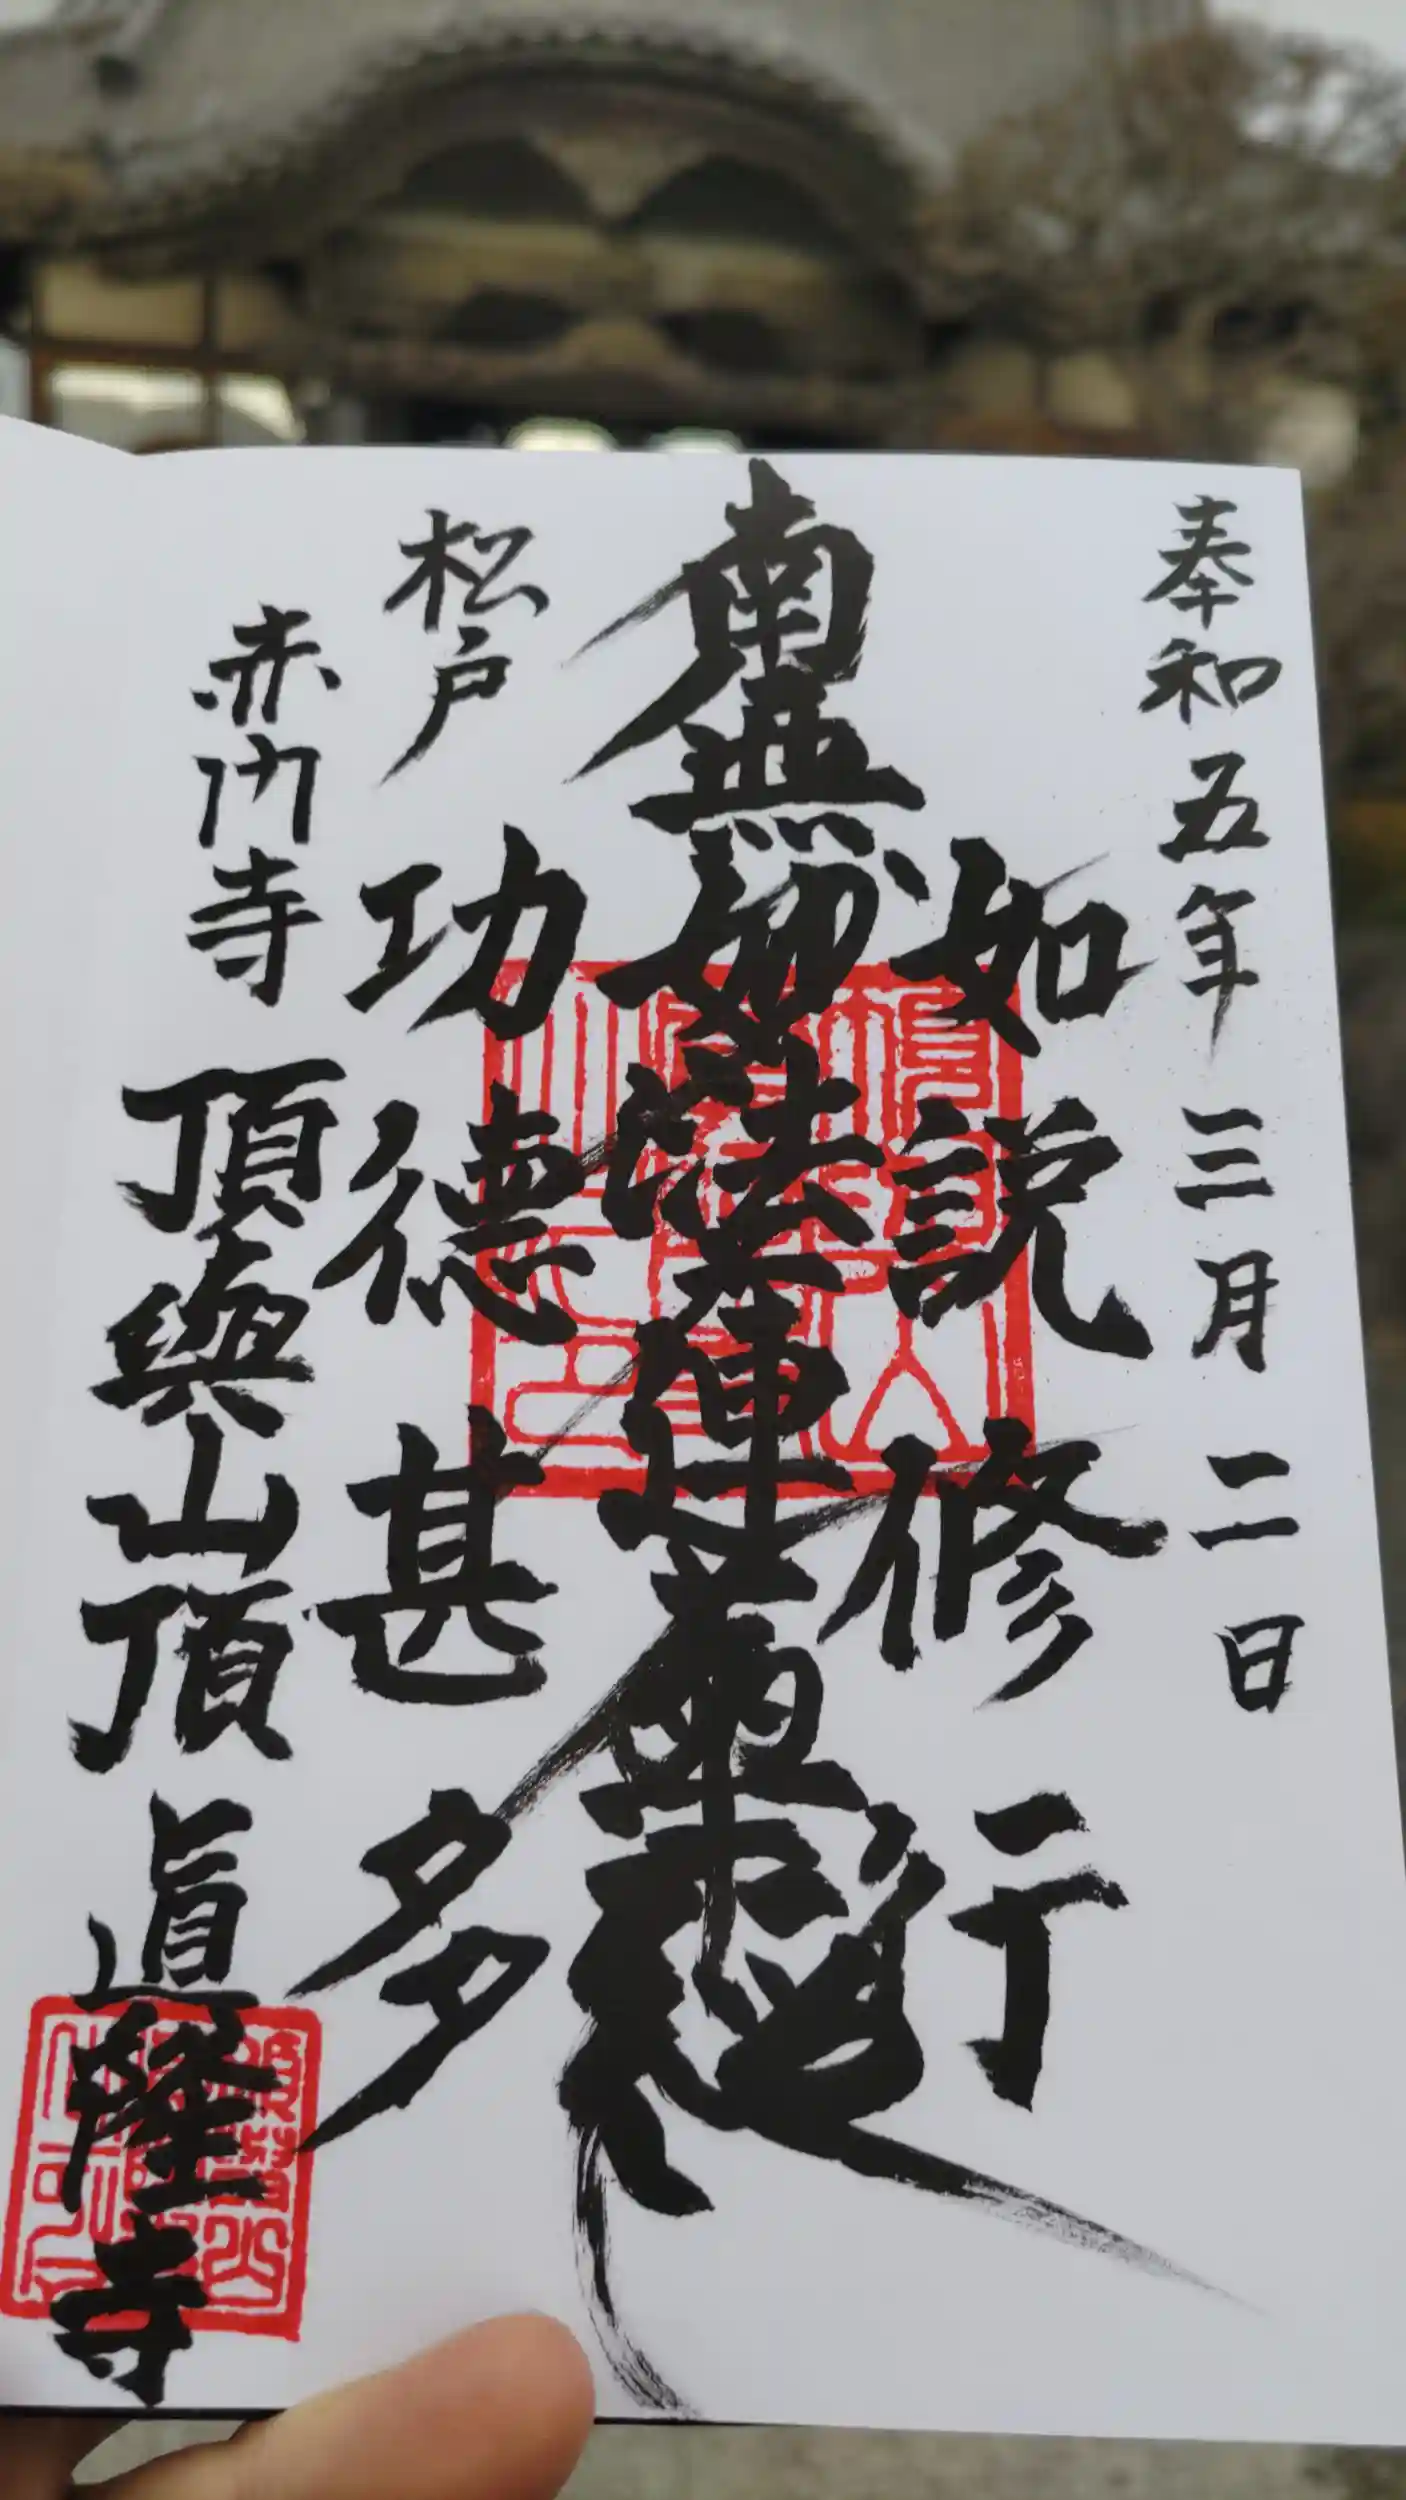 奉和五年三月二日
如説修行
南無妙法蓮華経
功徳甚多
松戸
赤门寺
頂與山頂眞隆寺